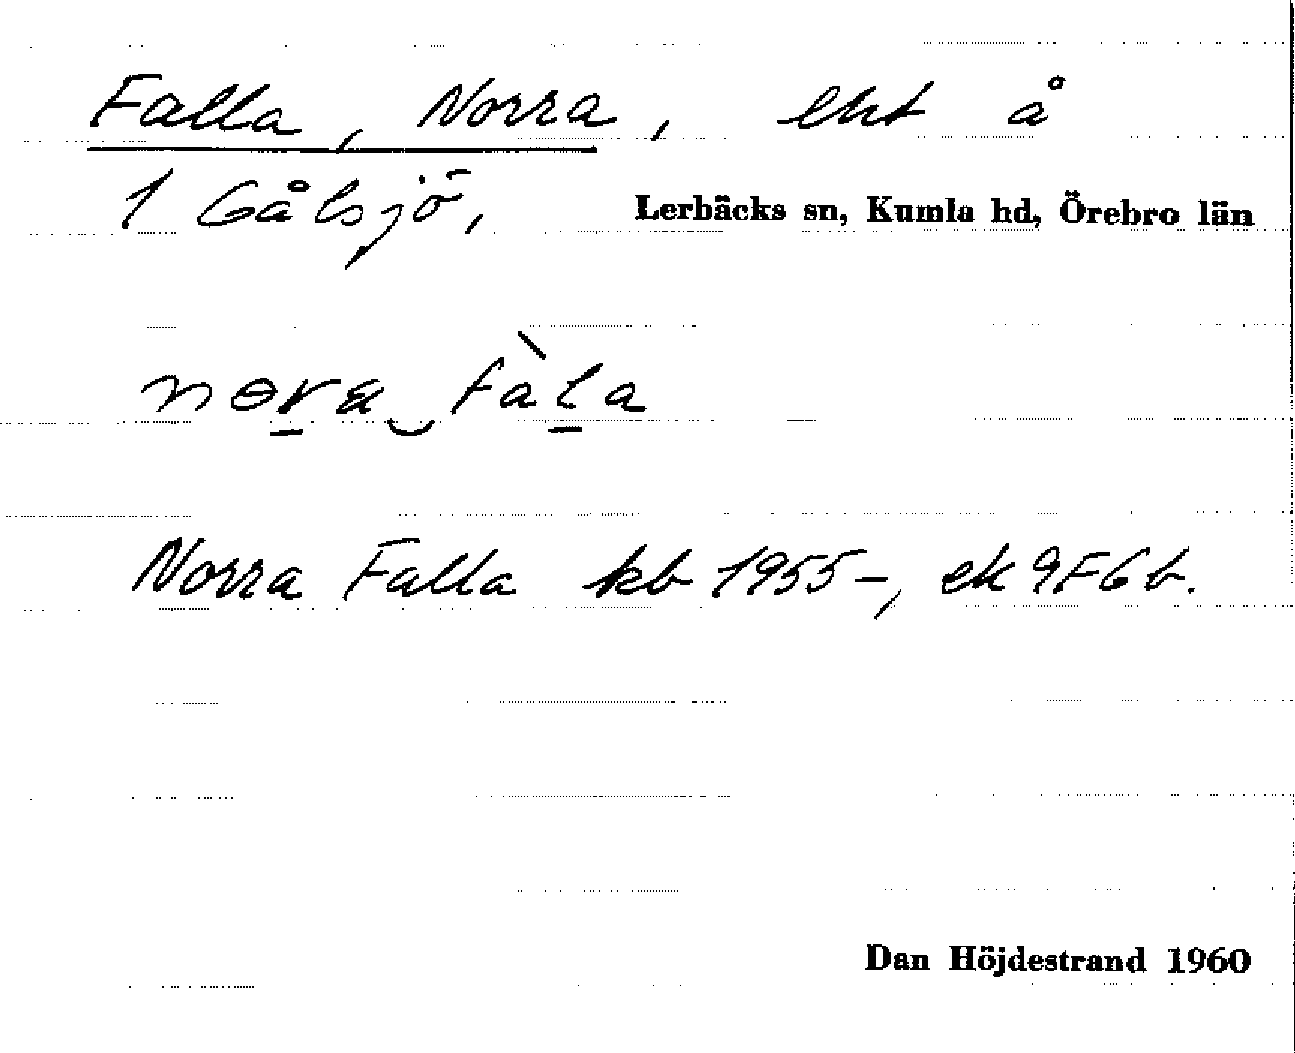 Falla, Norra, lht å
1 Gålsjö, Lerbäcks sn, Kumla hd, Örebro län
nɵra‿fàla
Norra Falla kb 1955–, ek 9F6b.
Dan Höjdestrand 1960